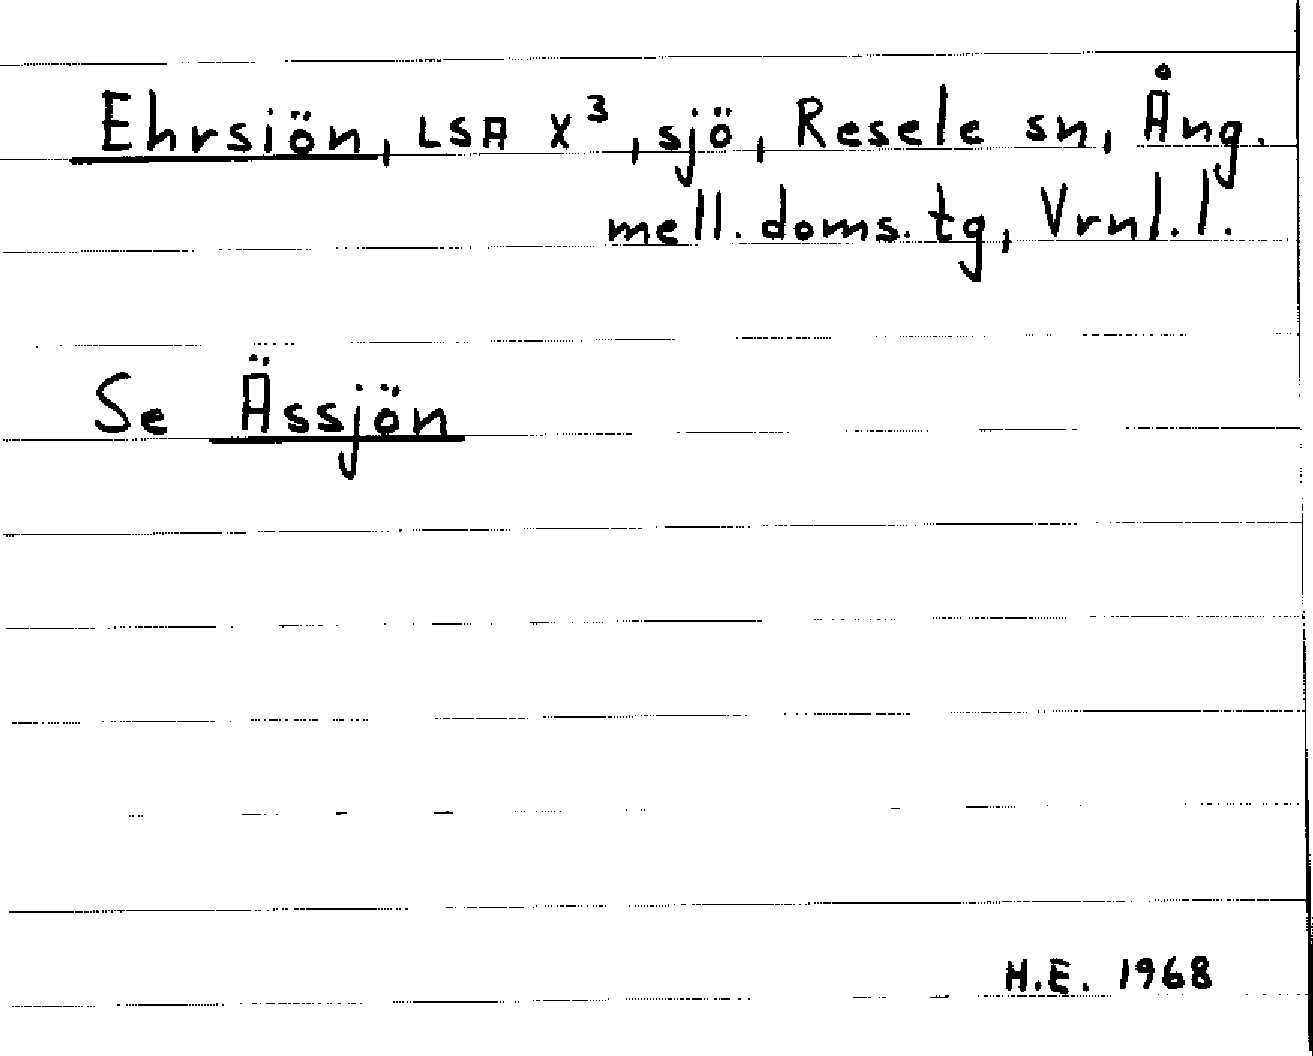 Ehrsiön, LSA X³, sjö, Resele sn, Ång.
mell. doms. tg, Vrnl. l.
Se Ässjön
H.E. 1968